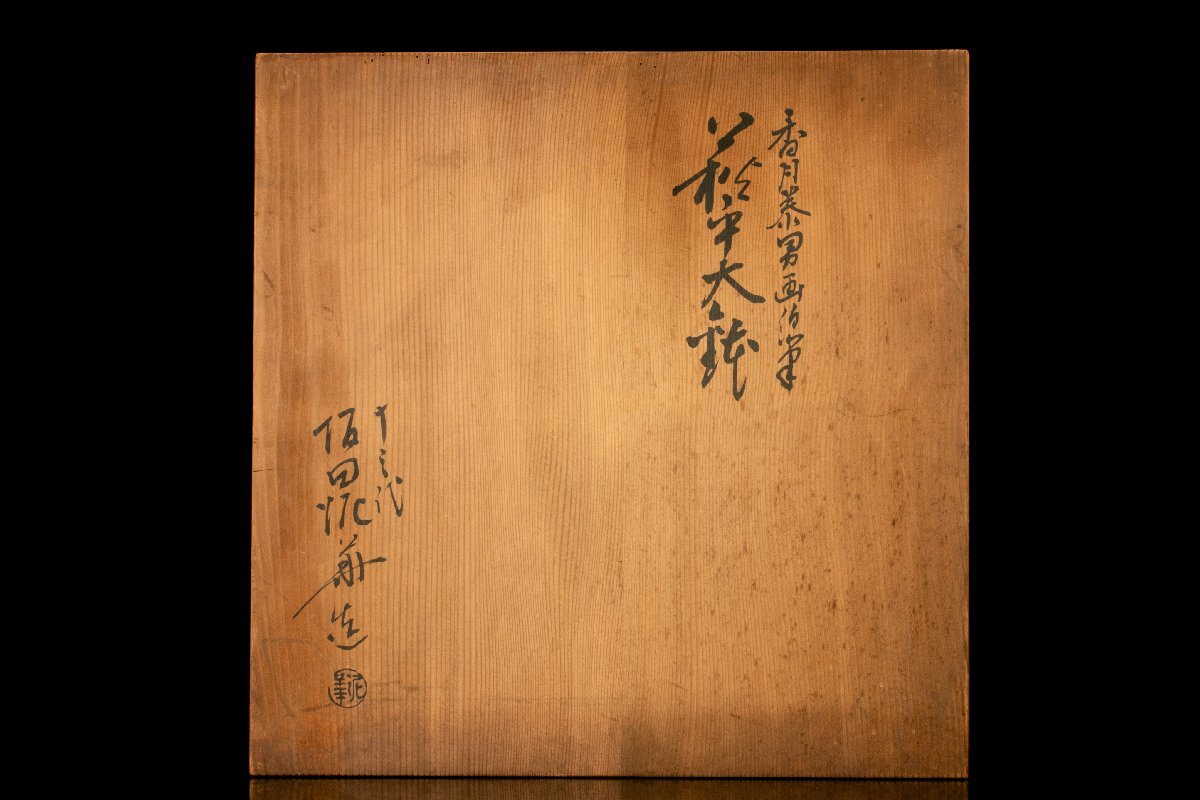 香月泰男画伯筆
萩平大鉢
十三代
坂田泥華造
泥華